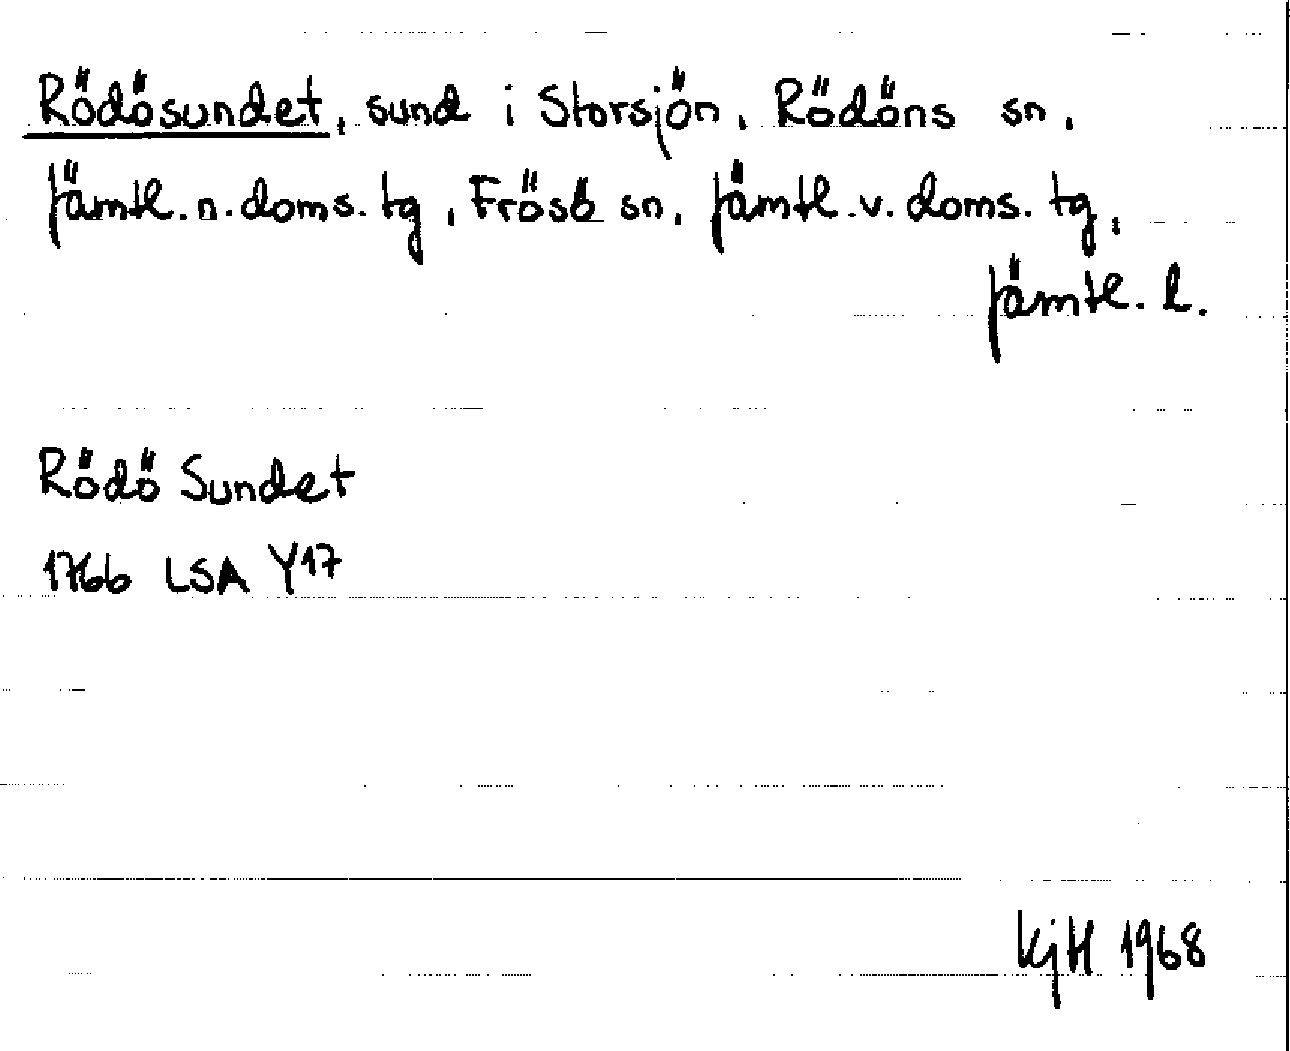 Rödösundet, sund i Storsjön, Rödöns sn,
Jämtl. n. doms. tg, Frösö sn, Jämtl. v. doms. tg,
Jämtl. l.
Rödö Sundet
1766 LSA Y17
KjH 1968